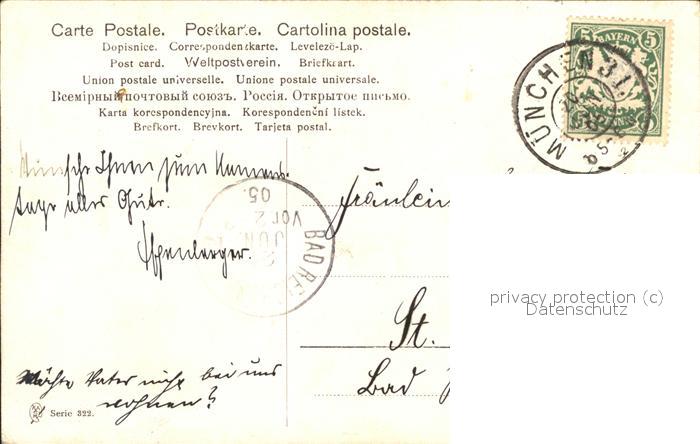 Carte Postale. Postkarte. Cartolina postale.
Dopisnice. Correspondenzkarte. Levelező-Lap.
Post card. Weltpostverein. Briefkaart.
Union postale universelle. Unione postale universale.
Всемірный почтовый союзъ. Россія. Открытое письмо.
Karta korespondencyjna. Korespondenční lístek.
Brefkort. Brevkort. Tarjeta postal.
BAYERN
5 5
MÜNCHEN 31.
Wünsche Ihnen zum Namens-
tage alles Gute.
BAD RE
VOR 2
05.
Fräulein
privacy protection (c)
Datenschutz
St.
Bad
Möchte Vater nicht bei uns
wohnen?
Serie 322.